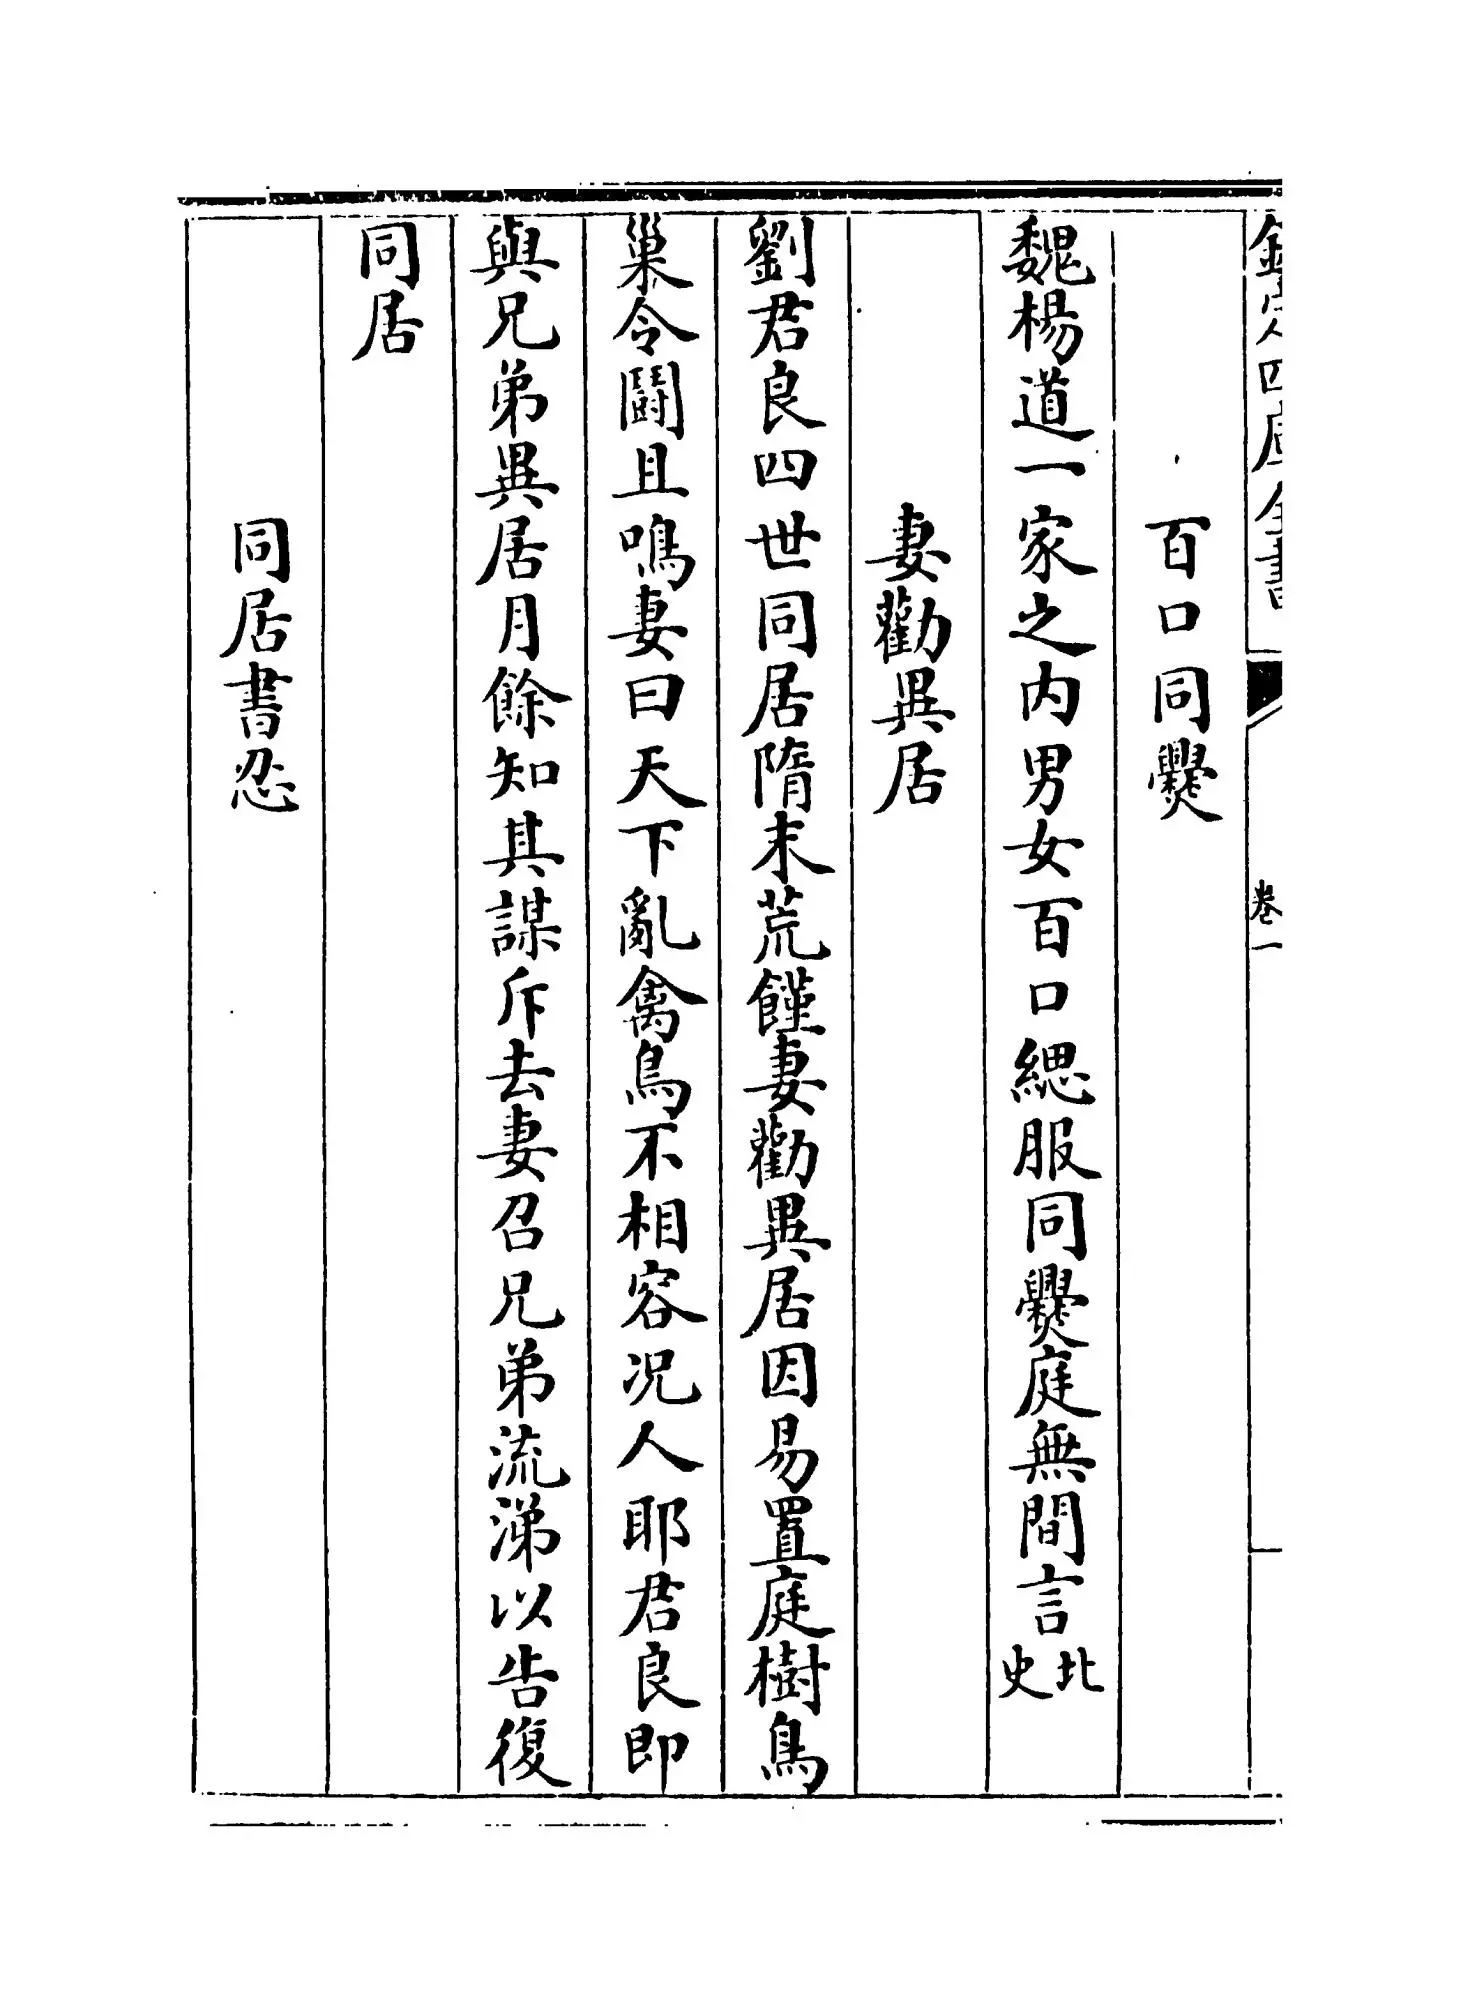 欽定四庫全書
卷一
百口同爨
魏楊道一家之内男女百口緦服同爨庭無間言北史
妻勸異居
劉君良四世同居隋末荒饉妻勸異居因易置庭樹鳥
巢令鬭且鳴妻曰天下亂禽鳥不相容况人耶君良即
與兄弟異居月餘知其謀斥去妻召兄弟流涕以告復
同居
同居書忍